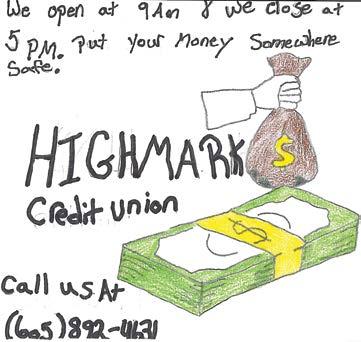 We open at 9Am & we close at
5 P.M. Put your Money Somewhere
Safe.
$
HIGHMARK
Credit union
$
Call us At
(605) 892-4631